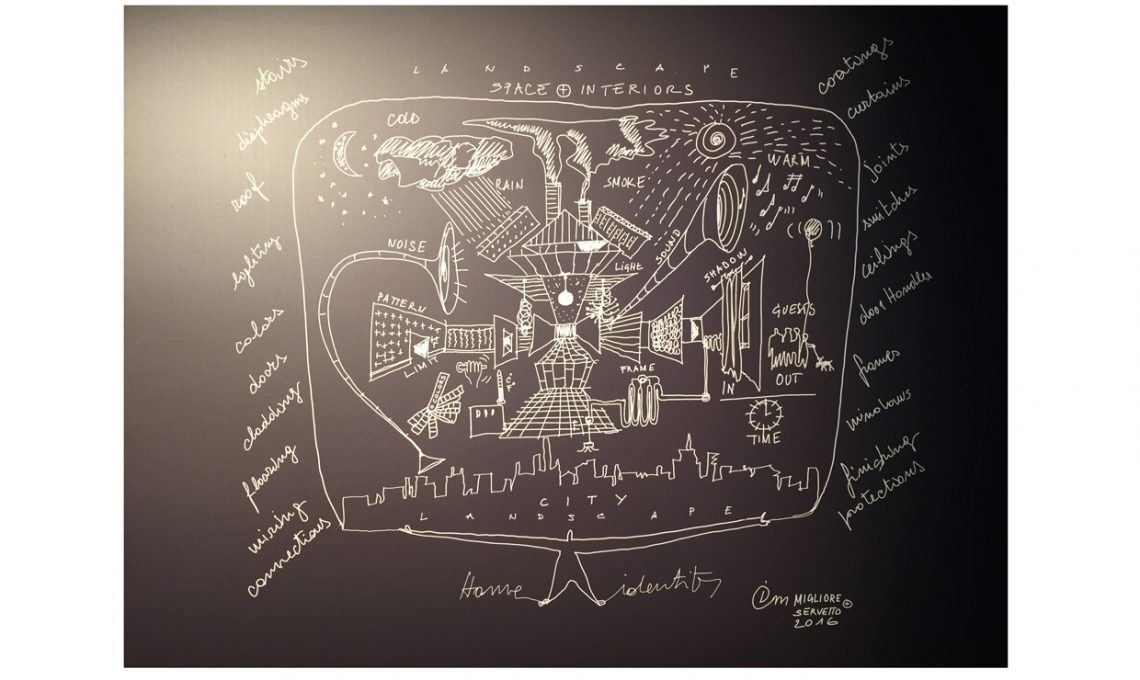 LANDSCAPE
SPACE + INTERIORS
stairs
diaphragms
roof
lighting
colors
doors
cladding
flooring
wiring
connections
COLD
RAIN
SMOKE
WARM
NOISE
SOUND
LIGHT
SHADOW
PATTERN
LIMIT
COLORS
°C
°F
FRAME
GUESTS
IN
OUT
TIME
CITY
LANDSCAPE
coatings
curtains
joints
switches
ceilings
door Handles
frames
windows
finishing
protections
Home identity
im MIGLIORE +
SERVETTO
2016